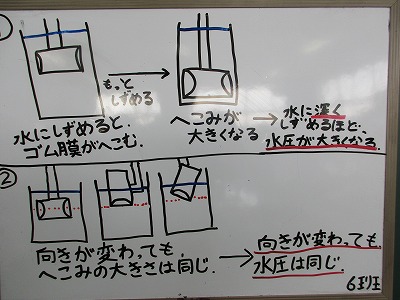 ①
もっと
しずめる
水にしずめると、
ゴム膜がへこむ。
へこみが
大きくなる
水に深く
しずめるほど、
水圧が大きくなる。
②
向きが変わっても、
へこみの大きさは同じ。
向きが変わっても、
水圧は同じ。
6班